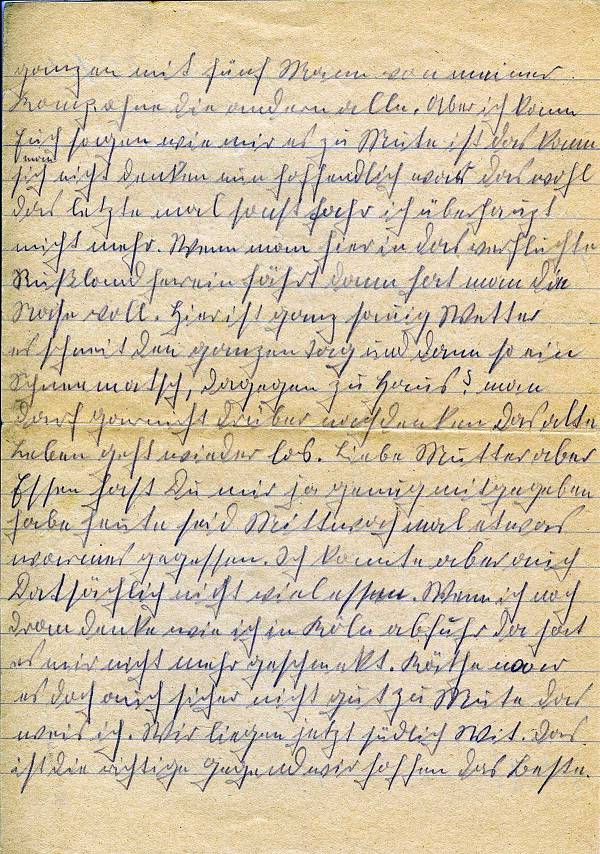 ganzen mit fünf Mann von meiner
Kompahne die andern alle. Aber ich kann
Euch sagen wie mir es zu Mute ist das kann
man
sich nicht denken nun hoffendlich war das wohl
das letzte mal sonst fahr ich überhaupt
nicht mehr. Wenn man hier in das verfluchte
Rußland herein fährt dann hat man die
Nase voll. Hier ist ganz sauig Wetter
es schneit den ganzen Tag und dann so ein
Schneematsch, dagegen zu Haus? man
darf garnicht drüber nachdenken das alte
Leben geht wieder los. Liebe Mutter aber
Essen hast Du mir ja genug mitgegeben
habe heute seid Mittwoch mal etwas
warmes gegessen. Ich konnte aber auch
Datsächlich nicht viel essen. Wenn ich noch
dran denke wie ich in Köln abfuhr da hat
es mir nicht mehr geschmekt. Käthe war
es doch auch sicher nicht gut zu Mute das
weis ich. Wir liegen jetzt südlich Wit. Das
ist die richtige Gegend wir hoffen das Beste.